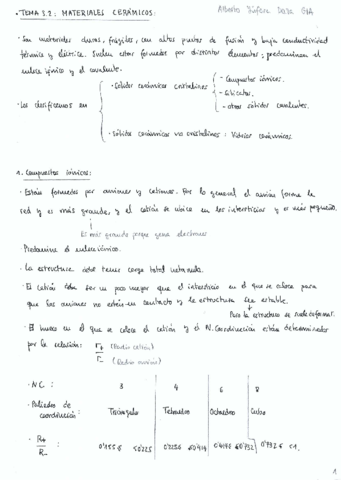 • TEMA 3.2: MATERIALES CERÁMICOS:
Alberto
• Son materiales duros, frágiles, con altos puntos de fusión y baja conductividad
térmica y eléctrica. Suelen estar formados por distintos elementos; predominan el
enlace iónico y el covalente.
• Los clasificamos en
• Sólidos cerámicos cristalinos
- Compuestos iónicos.
- Silicatos.
- otros sólidos covalentes.
• Sólidos cerámicos no cristalinos: Vidrios cerámicos.
1. Compuestos iónicos:
• Están formados por aniones y cationes. Por lo general el anión forma la
red y es más grande, y el catión se ubica en los intersticios y es más pequeño.
Es más grande porque gana electrones
• Predomina el enlace iónico.
• La estructura debe tener carga total neutra.
• El catión debe ser un poco mayor que el intersticio en el que se coloca para
que los aniones no estén en contacto y la estructura sea estable.
Pero la estructura se suele deformar.
• El hueco en el que se coloca el catión y el N. Coordinación están determinados
por la relación: r+ (Radio catión)
r- (Radio anión)
• N.C.: 3 4 6 8
• Poliedros de
coordinación: Triángulo Tetraedro Octaedro Cubo
• R+
R- : 0'155 ≤ <0'225 0'225 ≤ <0'414 0'414 ≤ <0'732 0'732 ≤ <1
1